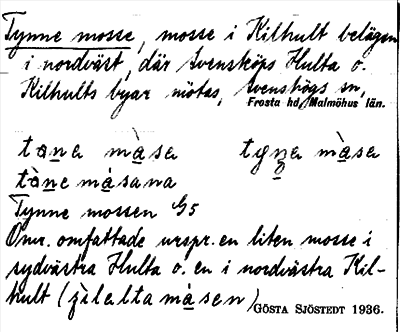 Tynne mosse, mosse i Kilhult belägen
i nordväst, där Svensköps Hulta o.
Kilhults byar mötas, Svensköps sn,
Frosta hd, Malmöhus län.
tana màsa tyna màsa
tàne màsana
Tynne mossen G5
Omr. omfattade urspr. en liten mosse i
sydvästra Hulta o. en i nordvästra Kil-
hult (jìlalta màsen)
GÖSTA SJÖSTEDT 1936.